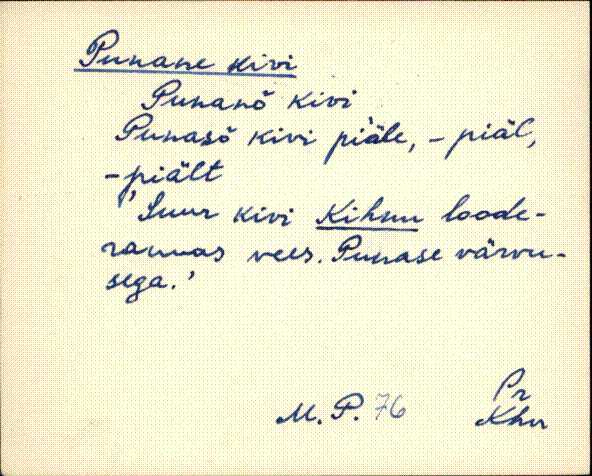 Punane kivi
Punanõ kivi
Punasõ kivi piäle, - piäl,
- piält
'Suur kivi Kihnu loode-
rannas vees. Punase värvu-
sega.'
M. P. 76
Pr
Khn